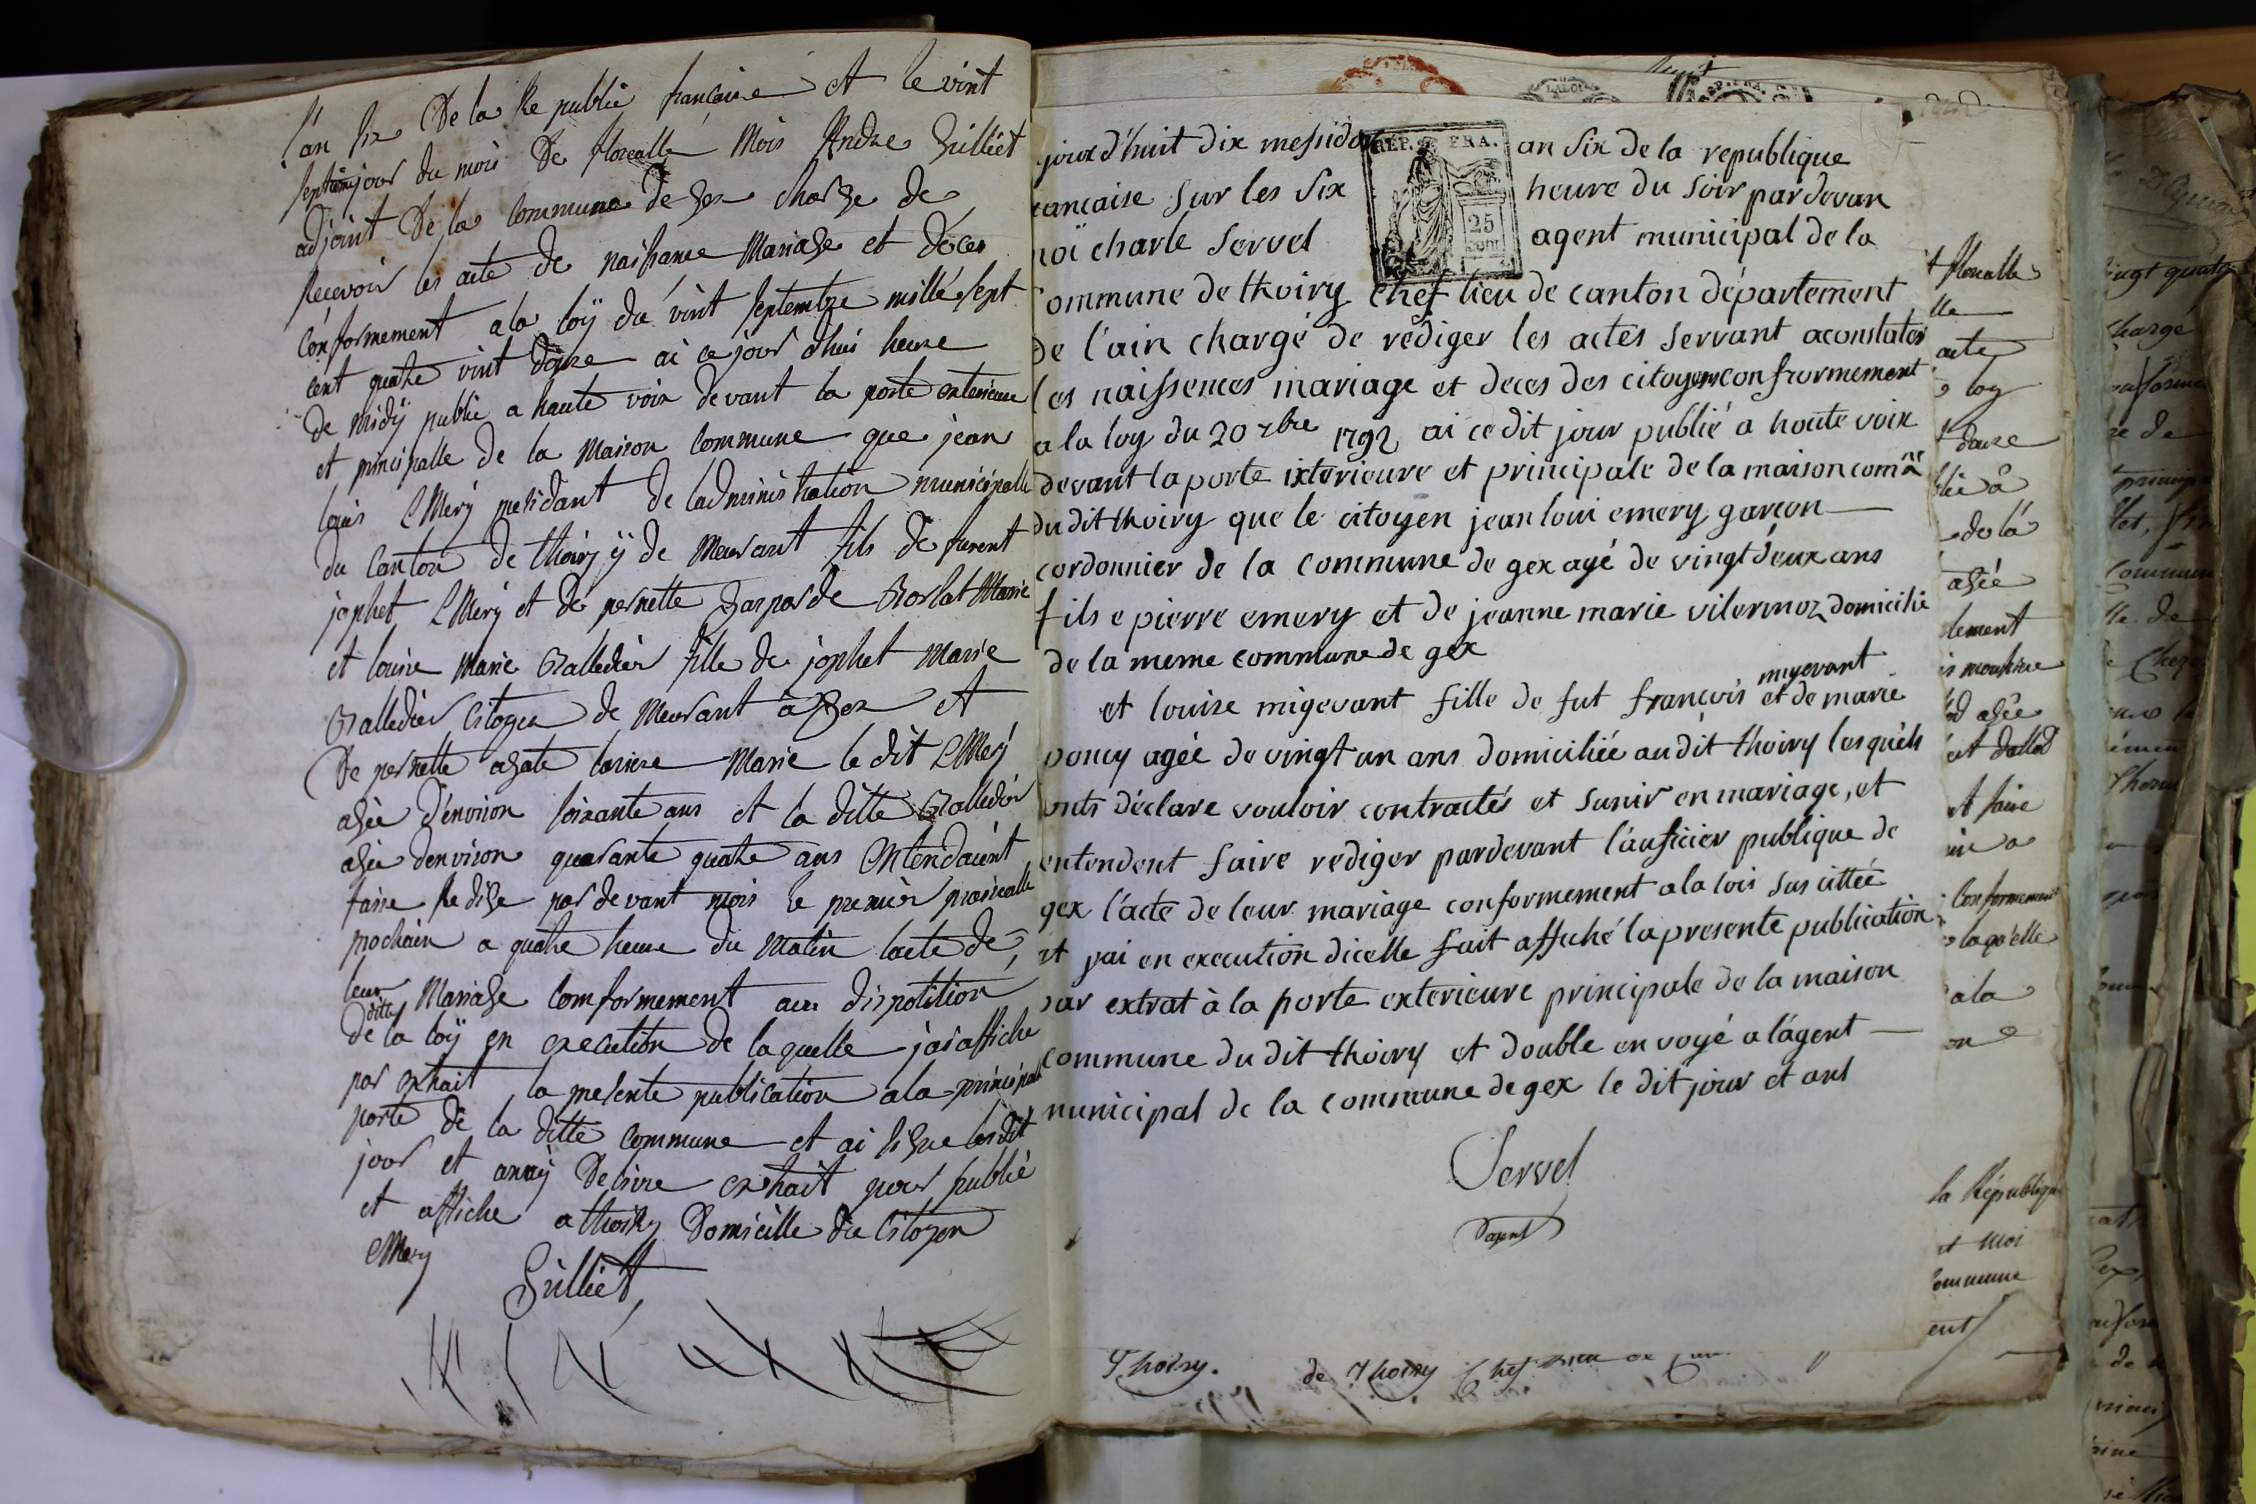 L'an six De la Republic francaise et le vint
septiem jour du mois De florealle Mois Andre Gilliet
adjoint De la Commune de Gex charge de
Recevoir les acte de naissance Mariage et déces
conformement a la loÿ du vint septembre mille sept
cent quatre vint douze ai ce jour d'hui heure
de midÿ publie a haute voix devant la porte exterieure
et principalle de la Maison Commune que jean
louis EMery presidant de ladministration municipalle
du Canton de thoiry ÿ de Meurant fils de furent
japhet EMery et de pernette Gasparde
et louise Marie Balledier fille de japhet Marie
Balledier Citoyen de Meurant à Gex et
De pernette agate Marie le dit EMery
agée d'environ soixante ans et la ditte Balledier
agée denviron quarante quatre ans Entendaient
faire Redige par devant mois le premier prairealle
prochain a quatre heure du Matin lacte de
leur Mariage Comformement aux dispotition
de la ditte loÿ en execution de laquelle j'ai affiche
par extrait la presente publication a la principalle
porte de la ditte Commune et ai signe lesdit
jour et annÿ Delivre extrait pour publié
et affiche a thoiry Domicille du Citoyen
EMery
Gilliet
jourd'huit dix messidor an six de la republique
ancaise sur les six heure du soir pardevan
moï charle servel agent municipal de la
ommune de thoiry chef lieu de canton département
de l'ain chargé de rédiger les actes servant a constater
les naissences mariage et deces des citoyens confrormement
a la loy du 20 7bre 1792 ai ce dit jour publié a haute voix
devant la porte ixterieure et principale de la maison comne
du dit thoiry que le citoyen jean loui emery garçon
cordonnier de la commune de gex agé de vingt deux ans
fils e pierre emery et de jeanne marie vilermoz domicilié
de la meme commune de gex
et louise migevant fille de fut françois migevant et de marie
poncy agée de vingt un ans domiciliée audit thoiry lesquels
onts déclare vouloir contractés et sunir en mariage, et
entendent faire rediger pardevant l'auficier publique de
gex l'acte de leur mariage conformement a la lois sus cittée
et jai en execution dicelle fait affiché la presente publication
par extrat à la porte exterieure principale de la maison
commune du dit thoiry et double envoyé a l'agent
municipal de la commune de gex le dit jour et ans
Servel
d'agent
REP. FRA.
25
florealle
acte
loy
douze
de la
agée
agée
et faire
Conformement
laqu'elle
a la
la République
et Moi
commune
Thoiry. de Thoiry Chef
vingt quatre
chargé